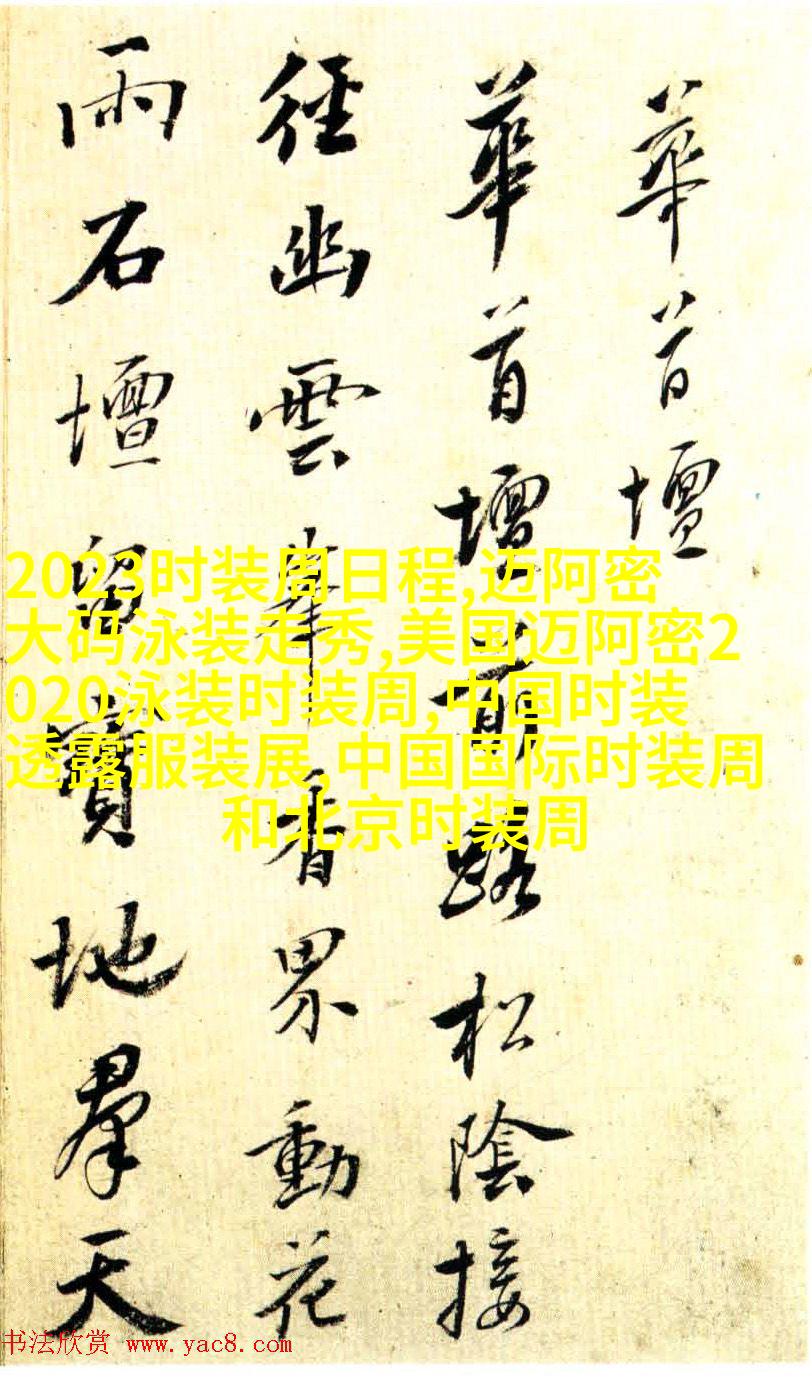 華首壇
華首壇前路松陰接
徑幽雲峯香界動花
雨石壇留寶地羣天
2023时装周日程,迈阿密
大码泳装走秀,美国迈阿密2
020泳装时装周,中国时装
透露服装展,中国国际时装周
和北京时装周
书法欣赏 www.yac8.com